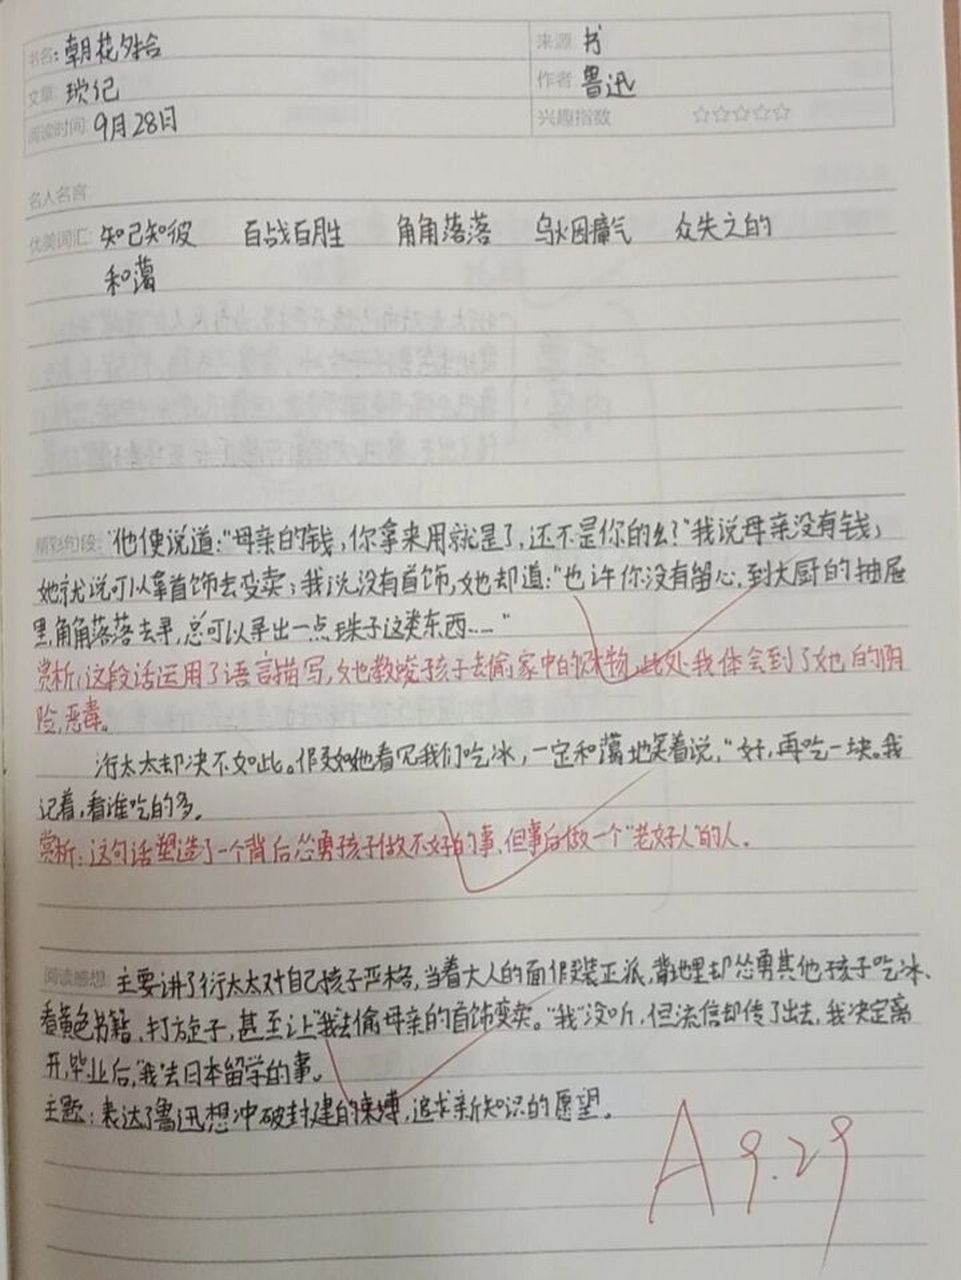 书名: 朝花夕拾 来源 书
文章 琐记 作者 鲁迅
阅读时间: 9月28日 兴趣指数 ☆☆☆☆☆
名人名言:
优美词汇: 知己知彼 百战百胜 角角落落 乌烟瘴气 众矢之的
和蔼
精彩句段: "他便说道:"母亲的钱,你拿来用就是了,还不是你的么?"我说母亲没有钱,
她就说可以拿首饰去变卖;我说没有首饰,她却道:"也许你没有留心,到大厨的抽屉
里,角角落落去寻,总可以寻出一点珠子这类东西……"
赏析:这段话运用了语言描写,她教唆孩子去偷家中的财物,此处我体会到了她的阴
险,恶毒。
衍太太却决不如此。假如她看见我们吃冰,一定和蔼地笑着说,"好,再吃一块。我
记着,看谁吃的多。
赏析:这句话塑造了一个背后怂勇孩子做不好的事,但事后做一个"老好人"的人。
阅读感想: 主要讲了衍太太对自己孩子严格,当着大人的面假装正派,背地里却怂勇其他孩子吃冰、
看黄色书籍、打旋子,甚至让"我"去偷母亲的首饰变卖。"我"没听,但流信却传了出去,我决定离
开,毕业后,"我"去日本留学的事。
主题:表达了鲁迅想冲破封建的束缚,追求新知识的愿望。
A 9.29